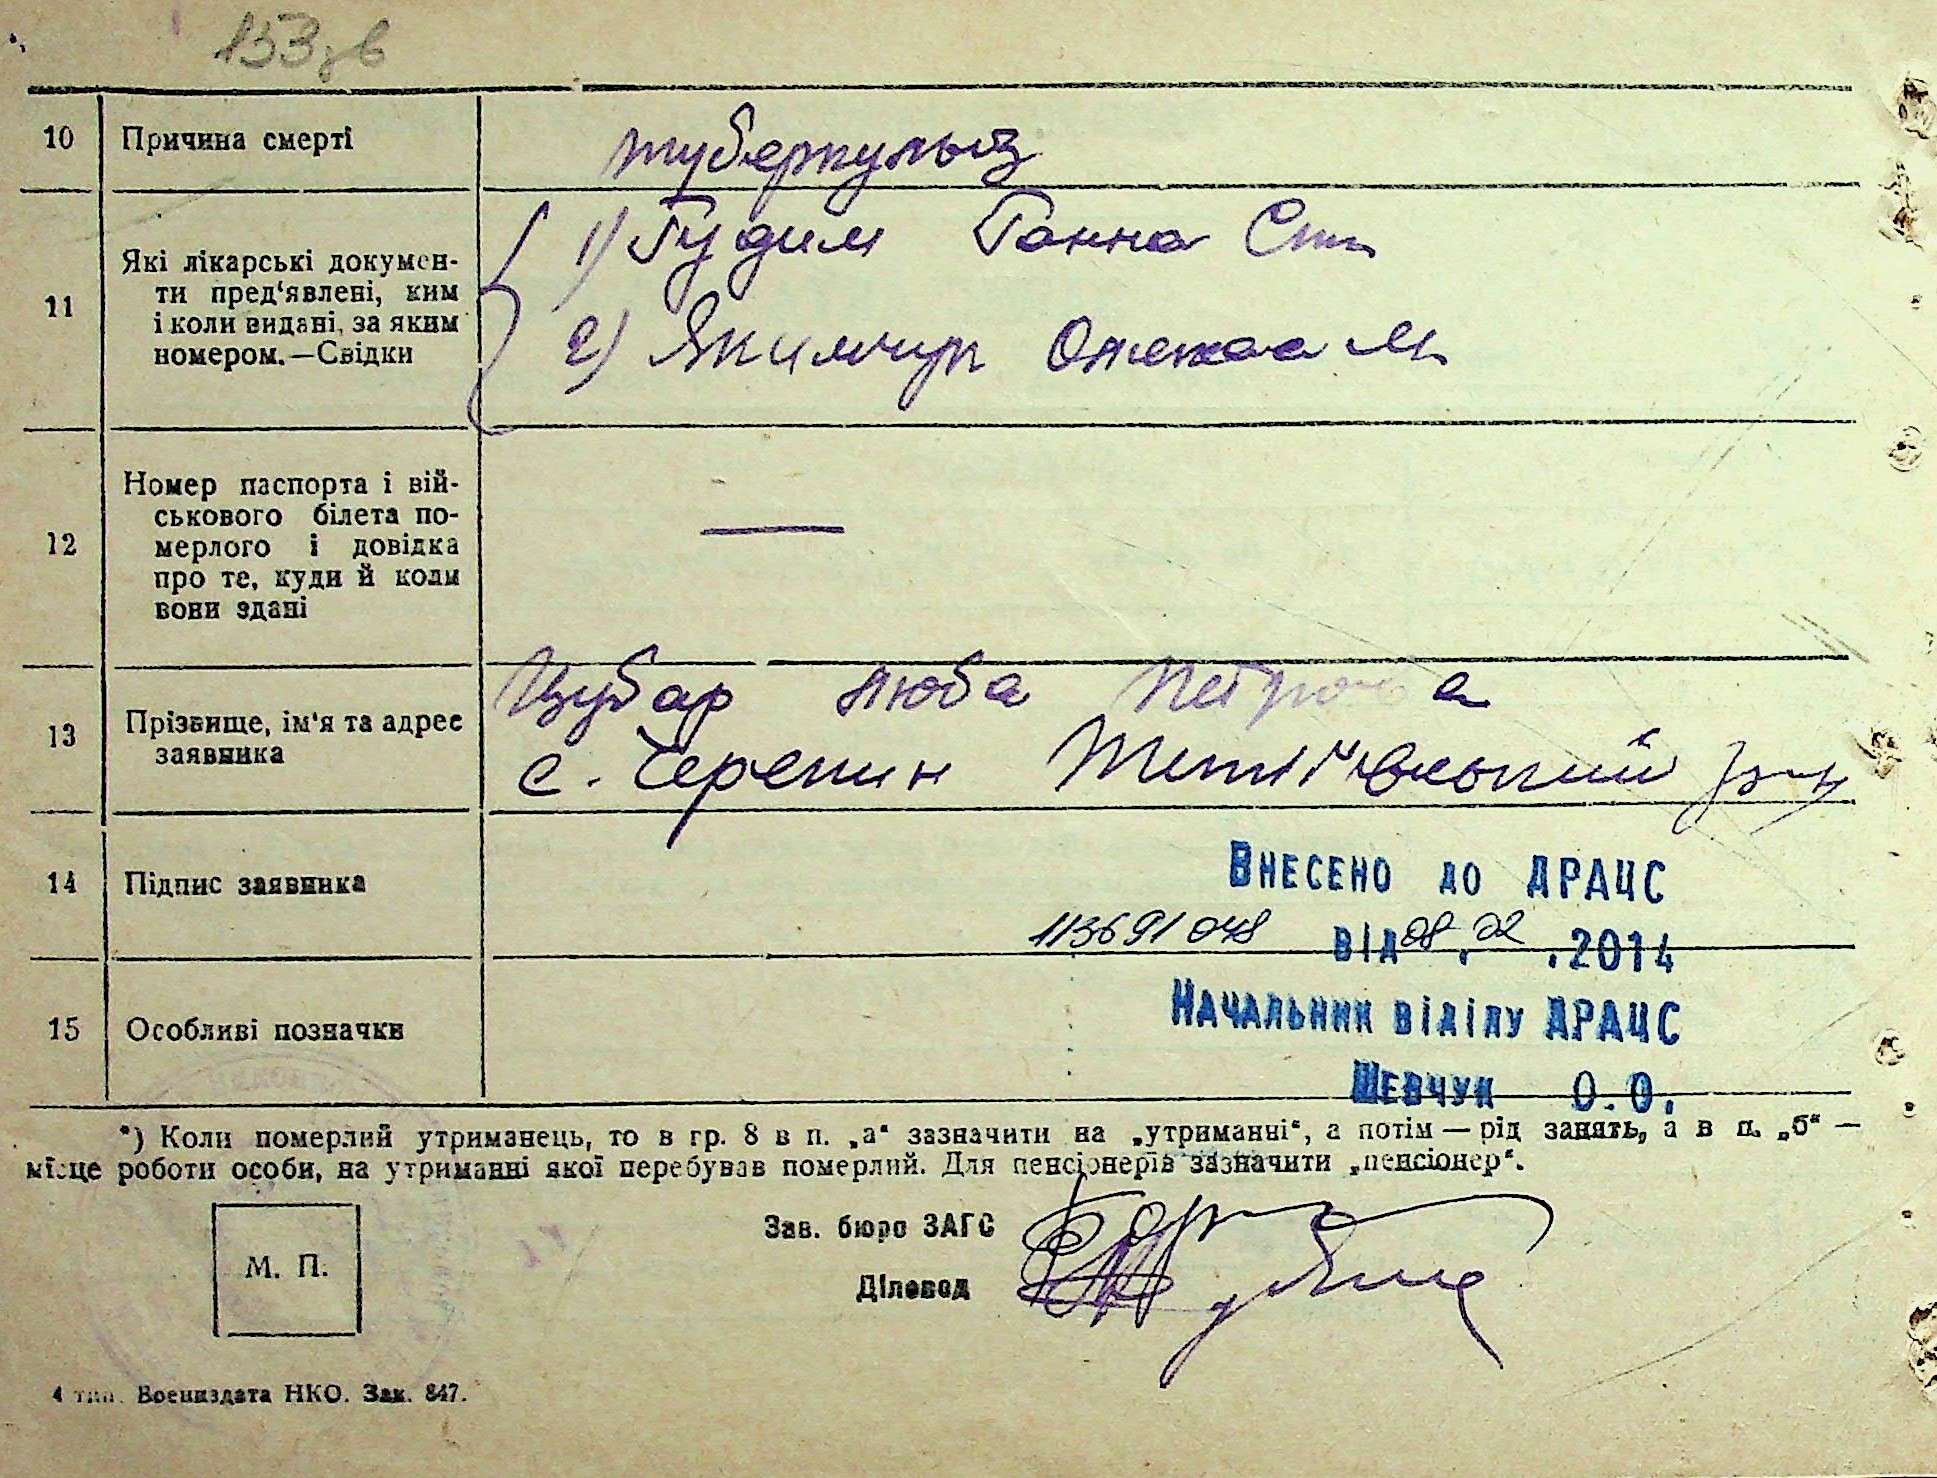 153зв
10 Причина смерті туберкульоз
11 Які лікарські докумен-
ти пред'явлені, ким
і коли видані, за яким
номером.—Свідки
1) Гудим Ганна Ст.
2) Якимчук М.
12 Номер паспорта і вій-
ськового білета по-
мерлого і довідка
про те, куди й коли
вони здані
—
13 Прізвище, ім'я та адрес
заявника
Цубар Люба Петровна
с. Черепин Тетіївський р-н
14 Підпис заявника
15 Особливі позначки
Внесено до ДРАЦС
113691048 від 08.02.2014
Начальник відділу ДРАЦС
Шевчук О.О.
*) Коли померлий утриманець, то в гр. 8 в п. „а“ зазначити на „утриманні“, а потім — рід занять, а в п. „б“ —
місце роботи особи, на утриманні якої перебував померлий. Для пенсіонерів зазначити „пенсіонер“.
М. П.
Зав. бюро ЗАГС
Діловод
4 тип. Воениздата НКО. Зак. 847.